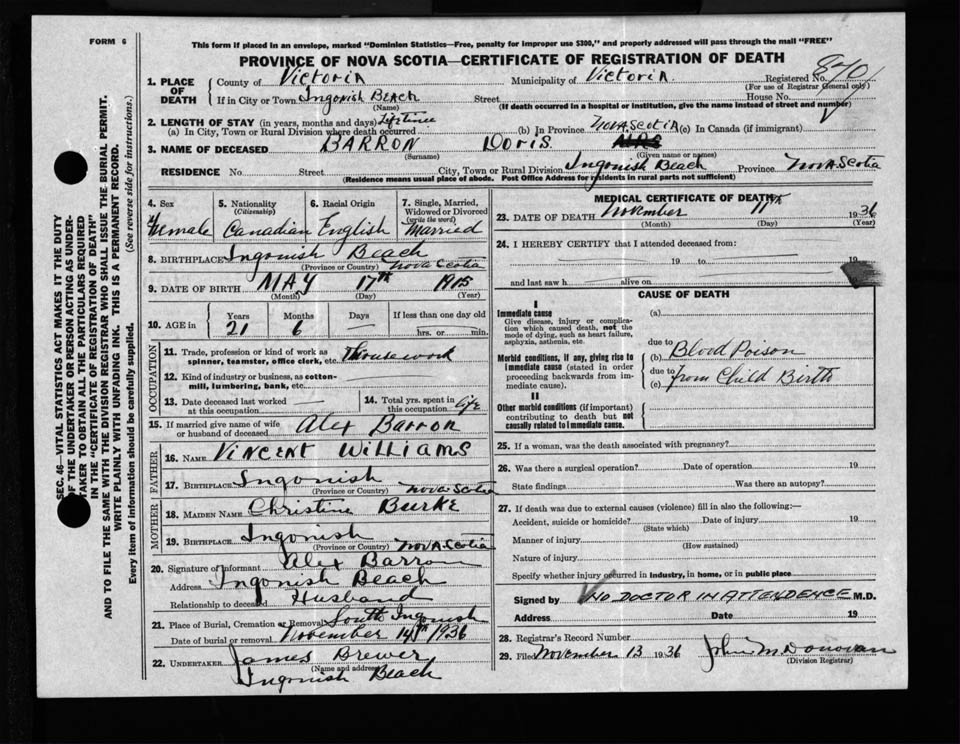 FORM 6
This form if placed in an envelope, marked "Dominion Statistics—Free, penalty for improper use $300," and properly addressed will pass through the mail "FREE"
PROVINCE OF NOVA SCOTIA—CERTIFICATE OF REGISTRATION OF DEATH
1. PLACE OF DEATH County of Victoria Municipality of Victoria. Registered No. 870
(For use of Registrar General only)
If in City or Town Ingonish Beach Street House No.
(Name) (If death occurred in a hospital or institution, give the name instead of street and number)
2. LENGTH OF STAY (in years, months and days) Lifetime
(a) In City, Town or Rural Division where death occurred (b) In Province Nova Scotia (c) In Canada (if immigrant)
3. NAME OF DECEASED BARRON Doris. MRS
(Surname) (Given name or names)
RESIDENCE No. Street City, Town or Rural Division Ingonish Beach Province Nova Scotia
(Residence means usual place of abode. Post Office Address for residents in rural parts not sufficient)
SEC. 46—VITAL STATISTICS ACT MAKES IT THE DUTY
OF THE UNDERTAKER OR PERSON ACTING AS UNDER-
TAKER TO OBTAIN ALL THE PARTICULARS REQUIRED
IN THE "CERTIFICATE OF REGISTRATION OF DEATH"
AND TO FILE THE SAME WITH THE DIVISION REGISTRAR WHO SHALL ISSUE THE BURIAL PERMIT.
WRITE PLAINLY WITH UNFADING INK. THIS IS A PERMANENT RECORD.
Every item of information should be carefully supplied. (See reverse side for instructions.)
4. Sex 5. Nationality (Citizenship) 6. Racial Origin 7. Single, Married, Widowed or Divorced (write the word)
Female Canadian English Married
8. BIRTHPLACE Ingonish Beach
(Province or Country) Nova Scotia
9. DATE OF BIRTH MAY 17th 1915
(Month) (Day) (Year)
10. AGE in Years Months Days If less than one day old
21 6 — hrs. or min.
OCCUPATION
11. Trade, profession or kind of work as spinner, teamster, office clerk, etc. Housework
12. Kind of industry or business, as cotton-mill, lumbering, bank, etc.
13. Date deceased last worked at this occupation 14. Total yrs. spent in this occupation life
15. If married give name of wife or husband of deceased Alex Barron
FATHER
16. NAME Vincent Williams
17. BIRTHPLACE Ingonish
(Province or Country) Nova Scotia
MOTHER
18. MAIDEN NAME Christine Burke
19. BIRTHPLACE Ingonish
(Province or Country) Nova Scotia
20. Signature of informant Alex Barron
Address Ingonish Beach
Relationship to deceased Husband
21. Place of Burial, Cremation or Removal South Ingonish
Date of burial or removal November 14th 1936
22. UNDERTAKER James Brewer
(Name and address)
Ingonish Beach
MEDICAL CERTIFICATE OF DEATH
23. DATE OF DEATH November 11th 1936
(Month) (Day) (Year)
24. I HEREBY CERTIFY that I attended deceased from:
19 to 19
and last saw h alive on
CAUSE OF DEATH
I
Immediate cause (a)
Give disease, injury or complication which caused death, not the mode of dying, such as heart failure, asphyxia, asthenia, etc.
due to
Morbid conditions, if any, giving rise to immediate cause (stated in order proceeding backwards from immediate cause). (b) Blood Poison
due to
(c) from Child Birth
II
Other morbid conditions (if important) contributing to death but not causally related to immediate cause.
25. If a woman, was the death associated with pregnancy?
26. Was there a surgical operation? Date of operation 19
State findings Was there an autopsy?
27. If death was due to external causes (violence) fill in also the following:—
Accident, suicide or homicide? Date of injury 19
(State which)
Manner of injury
(How sustained)
Nature of injury
Specify whether injury occurred in industry, in home, or in public place
Signed by NO DOCTOR IN ATTENDENCE M.D.
Address Date 19
28. Registrar's Record Number
29. Filed November 13 1936 John M Donovan
(Division Registrar)